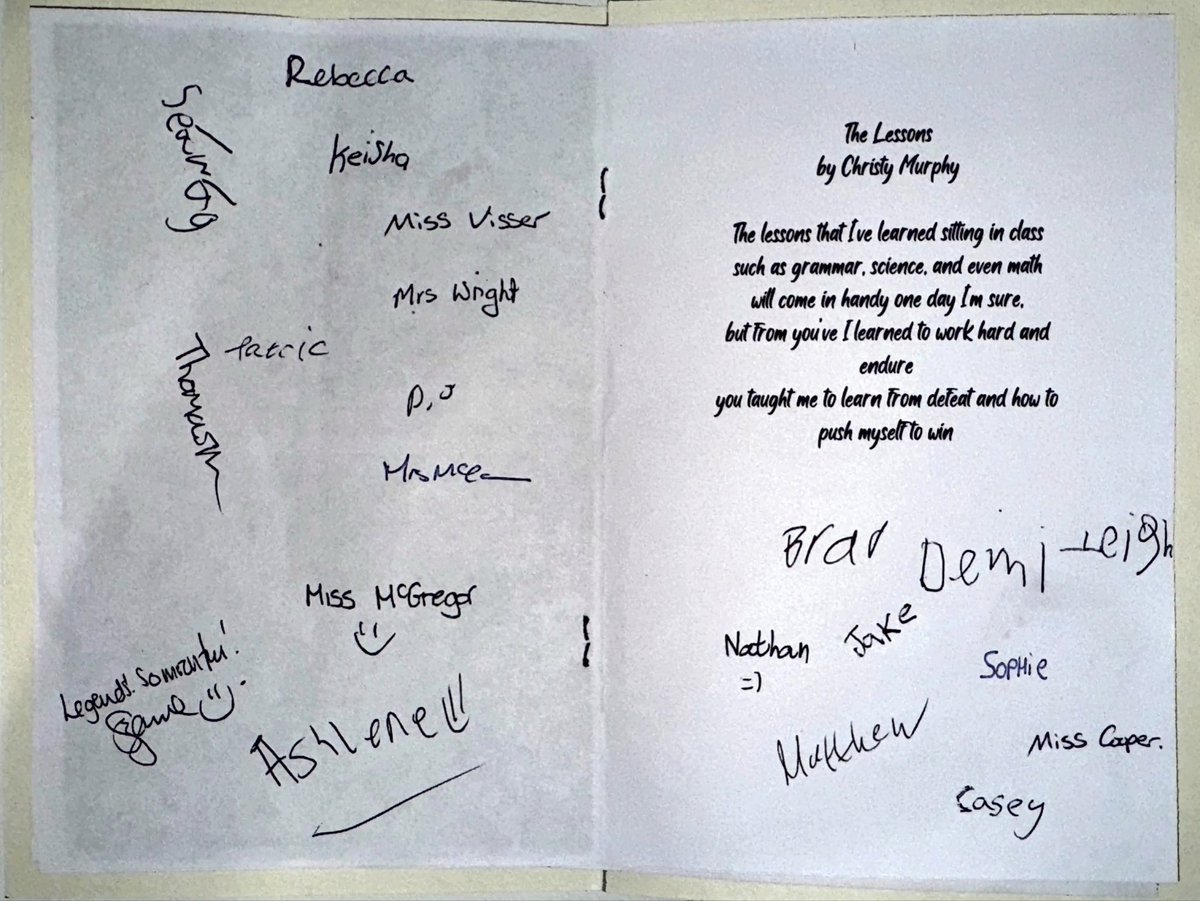 Rebecca
Keisha
Miss Visser
Mrs Wright
Thomas
D.J
Miss McGregor
Legends!
Ashlene
The Lessons
by Christy Murphy
The lessons that I've learned sitting in class
such as grammar, science, and even math
will come in handy one day I'm sure,
but from you've I learned to work hard and
endure
you taught me to learn from defeat and how to
push myself to win
Brad
Demi-Leigh
Nathan
=)
Jake
Sophie
Matthew
Miss Cooper.
Casey